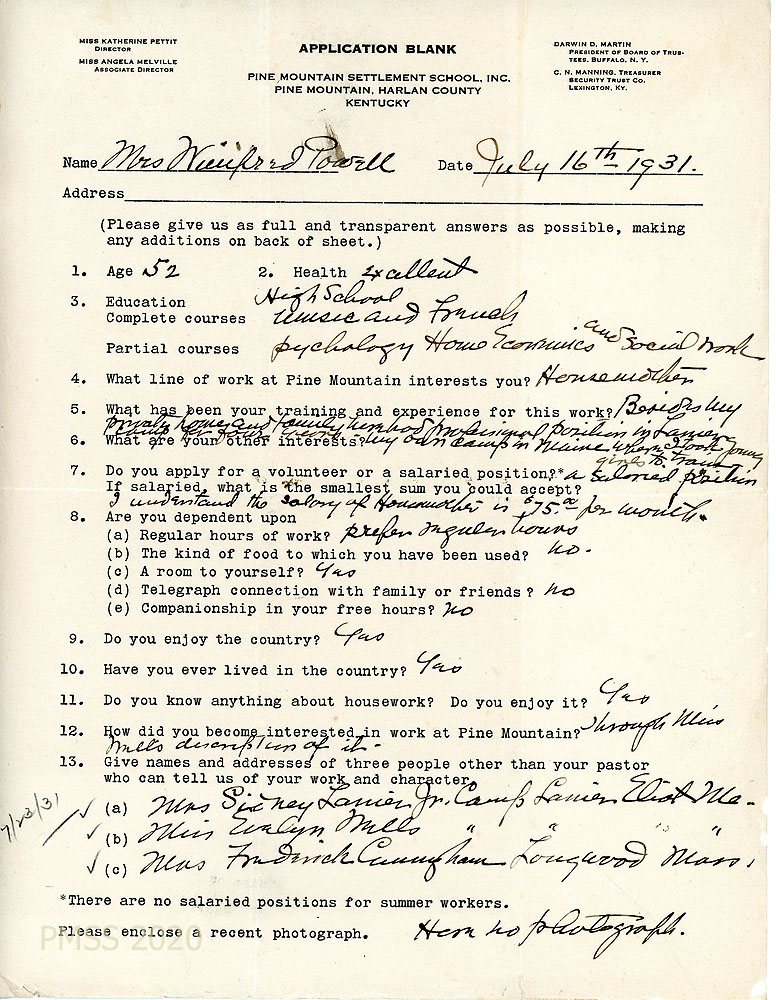 MISS KATHERINE PETTIT
DIRECTOR
MISS ANGELA MELVILLE
ASSOCIATE DIRECTOR
APPLICATION BLANK
PINE MOUNTAIN SETTLEMENT SCHOOL, INC.
PINE MOUNTAIN, HARLAN COUNTY
KENTUCKY
DARWIN D. MARTIN
PRESIDENT OF BOARD OF TRUS-
TEES, BUFFALO, N. Y.
C. N. MANNING, TREASURER
SECURITY TRUST CO.
LEXINGTON, KY.
Name Mrs Winifred Powell Date July 16th 1931.
Address
(Please give us as full and transparent answers as possible, making
any additions on back of sheet.)
1. Age 52 2. Health Excellent
3. Education High School
Complete courses Music and French
Partial courses psychology Home Economics and Social Work
4. What line of work at Pine Mountain interests you? Housemother
5. What has been your training and experience for this work? Besides my
private home and family have had professional position in Lanier
6. What are your other interests? my own camp in Maine where I took young
girls to train
7. Do you apply for a volunteer or a salaried position?* a salaried position
If salaried, what is the smallest sum you could accept?
I understand the salary of Housemother is $75.00 per month.
8. Are you dependent upon
(a) Regular hours of work? prefer regular hours
(b) The kind of food to which you have been used? no.
(c) A room to yourself? Yes
(d) Telegraph connection with family or friends? no
(e) Companionship in your free hours? no
9. Do you enjoy the country? Yes
10. Have you ever lived in the country? Yes
11. Do you know anything about housework? Do you enjoy it? Yes
12. How did you become interested in work at Pine Mountain? Through Miss
Mills description of it.
13. Give names and addresses of three people other than your pastor
who can tell us of your work and character.
7/23/31
✓ (a) Mrs Sidney Lanier Jr. Camp Lanier Eliot Me.
✓ (b) Miss Evelyn Mills " " " "
✓ (c) Mrs Frederick Cunningham Longwood Mass.
*There are no salaried positions for summer workers.
Please enclose a recent photograph. Have no photograph.
PMSS 2020